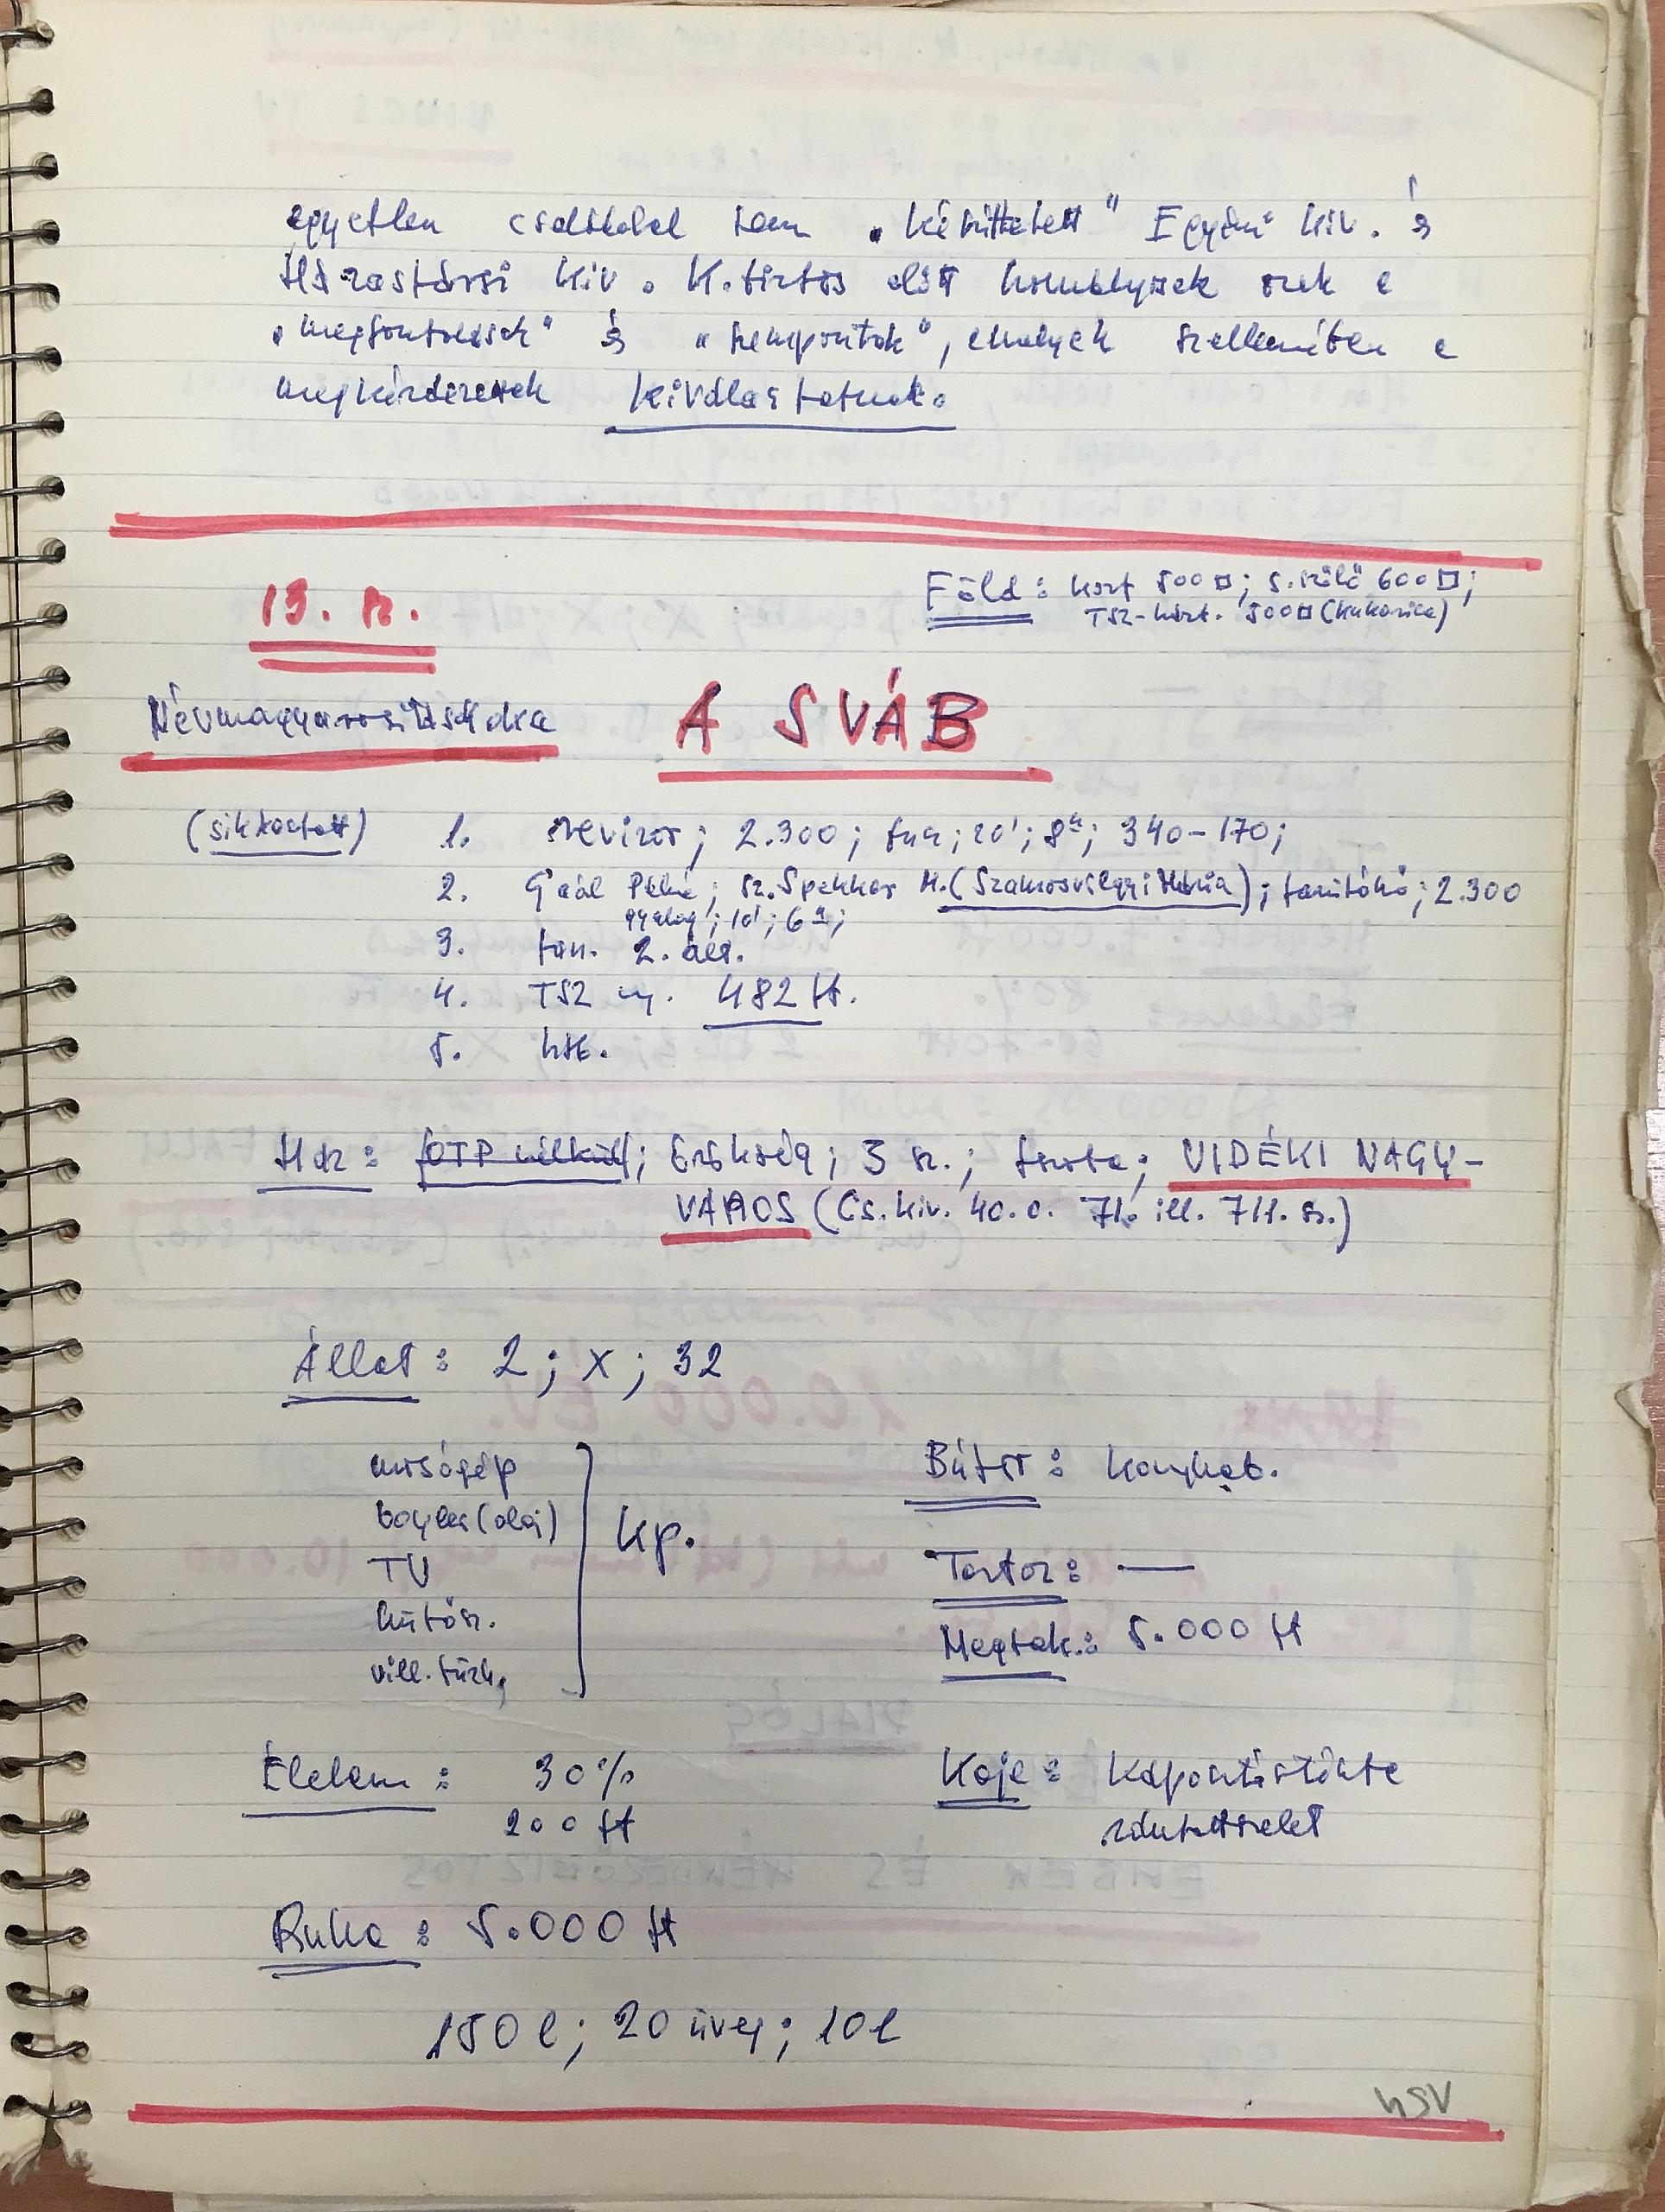 egyetlen családdal sem „készíttetett" Egyéni kiv. és
Házastársi kiv. K.biztos előtt homályosak ezek a
„megfontolások" és „szempontok", amelyek szellemében a
megkérdezettek kiválasztatnak.
13. sz.
Föld: kert 500 □; s. szőlő 600 □;
TSZ-házt. 500 □ (kukorica)
Névmagyarosítás oka
A SVÁB
(sikkasztott) 1. revizor; 2.300; fua; 20'; 8 á; 340-170;
2. Gaál Pálné; sz. Spekker M. (Szamosvölgyi Mária); tanítónő; 2.300
gyalog; 10'; 6 á;
3. tan. 2. ált.
4. TSZ ny. 482 Ft.
5. htb.
Ház: (OTP nélkül); örökség; 3 sz.; fszoba; VIDÉKI NAGY-
VÁROS (Cs. kiv. 40. o. 71. ill. 711. sz.)
Állat: 2; x; 32
mosógép
boyler (olaj)
TV
hűtősz.
vill. tűzh.
Kp.
Bútor: konyhab.
Tartoz: —
Megtak.: 5.000 Ft
Élelem: 30%
200 Ft
Kaja: Káposztástészta
zsírtatszelet
Ruha: 5.000 Ft
150 l; 20 üveg; 10 l
hSV